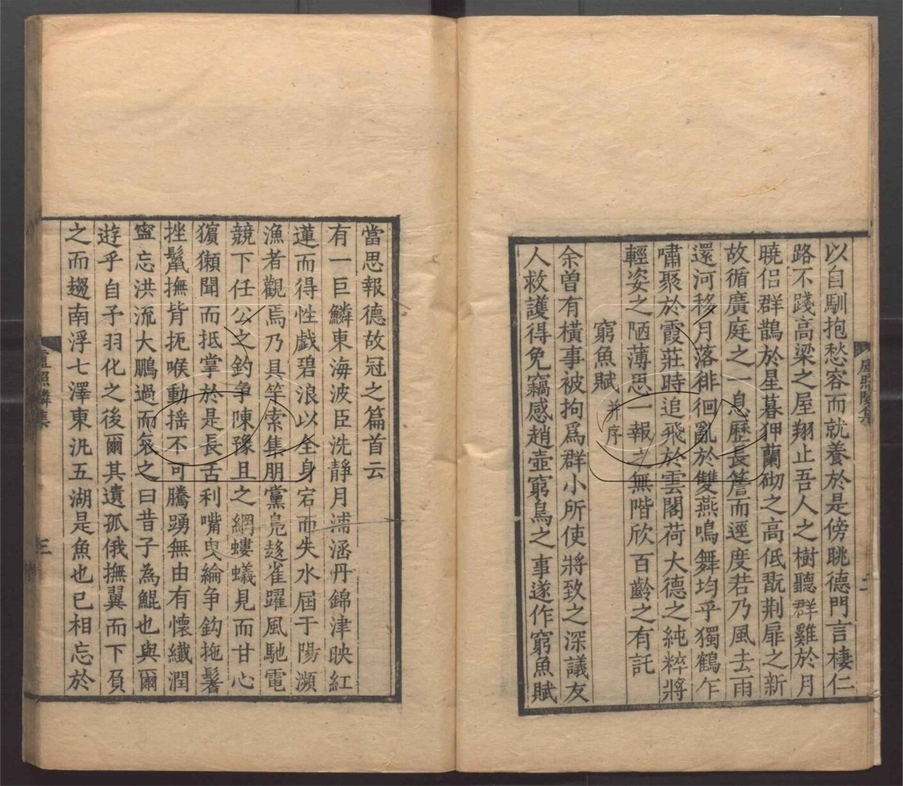 以自馴抱愁容而就養於是傍眺德門言棲仁
路不踐高梁之屋翔止吾人之樹聽群雞於月
曉侶群鵲於星暮狎蘭砌之高低翫荆扉之新
故循廣庭之一息歷長簷而逕度若乃風去雨
還河移月落徘徊亂於雙燕鳴舞均乎獨鶴乍
嘯聚於霞莊時追飛於雲閣荷大德之純粹將
輕姿之陋薄思一報之無階欣百齡之有託
窮魚賦 并序
余曾有橫事被拘爲群小所使將致之深議友
人救護得免竊感趙壹窮鳥之事遂作窮魚賦
盧照隣集
二
當思報德故冠之篇首云
有一巨鱗東海波臣洗靜月浦涵丹錦津映紅
蓮而得性戲碧浪以全身宕而失水屆于陽瀕
漁者觀焉乃具竿索集朋黨鳧趍雀躍風馳電
競下任公之釣爭陳豫且之網螻蟻見而甘心
獱獺聞而抵掌於是長舌利嘴曳綸争鈎拖鬐
挫鬣撫背扼喉動揺不可騰踴無由有懷纖潤
寧忘洪流大鵬過而哀之曰昔子為鯤也與爾
遊乎自子羽化之後爾其遺孤俄撫翼而下負
之而趨南浮七澤東汎五湖是魚也已相忘於
盧照隣集
三